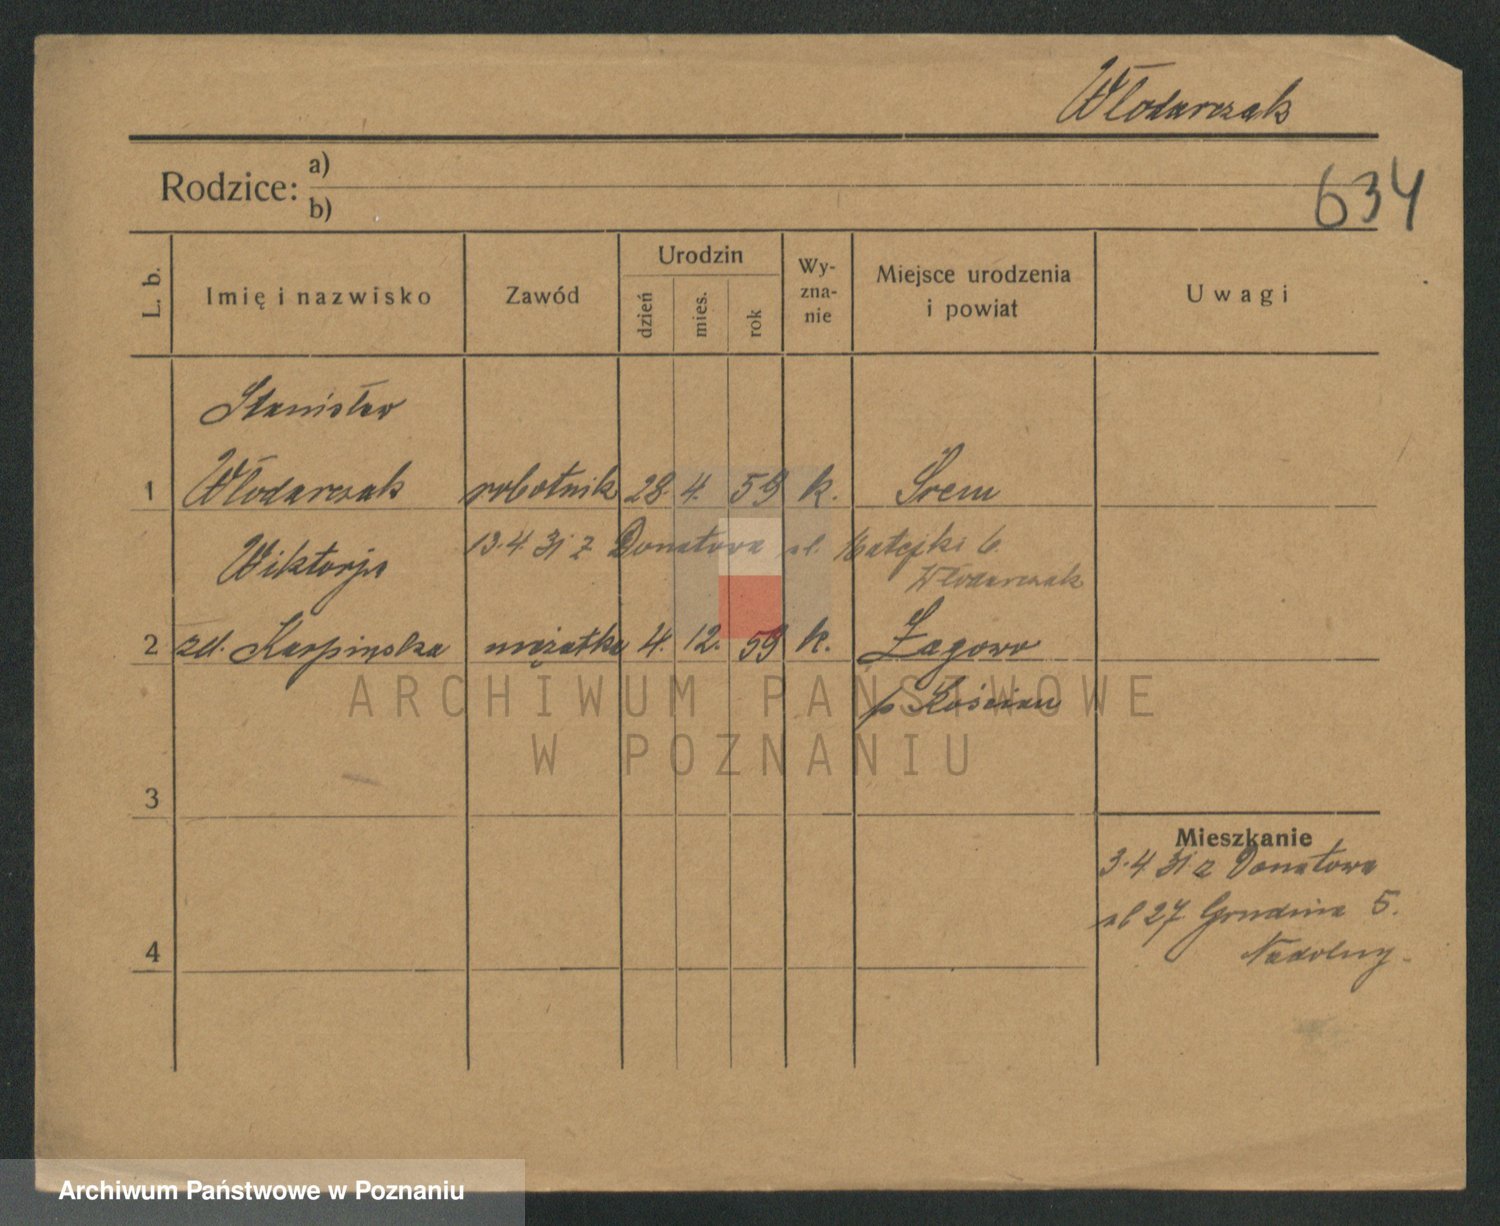 Włodarczak
Rodzice: a)
b)
634
L. b.
Imię i nazwisko
Zawód
Urodzin
dzień
mies.
rok
Wy-
zna-
nie
Miejsce urodzenia
i powiat
Uwagi
Stanisław
1 Włodarczak robotnik 28. 4. 59 k. Śrem
13.4 31 z Donatowa ul. Matejki 6.
Wiktorja
Włodarczak
2 zd. Karpińska mężatka 4. 12. 59 k. Żegowo
p. Kościan
ARCHIWUM PAŃSTWOWE
W POZNANIU
3
Mieszkanie
3.4 31 z Donatowa
ul 27 Grudnia 5.
Nadolny.
4
Archiwum Państwowe w Poznaniu